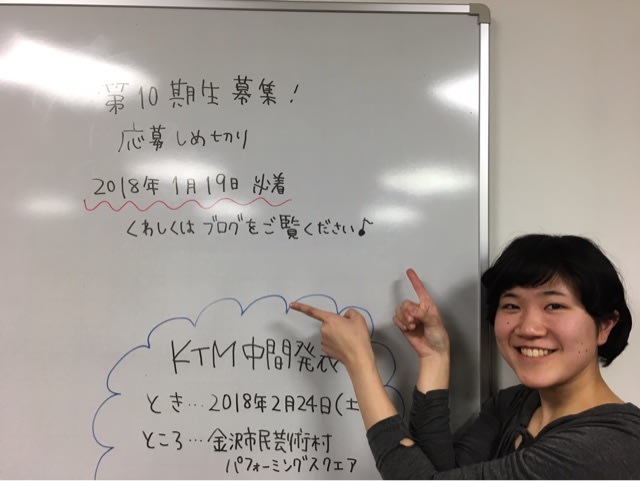 第10期生募集!
応募しめ切り
2018年1月19日 必着
くわしくはブログをご覧ください♪
KTM中間発表
とき…2018年2月24日(土
ところ…金沢市民芸術村
パフォーミングスクエア